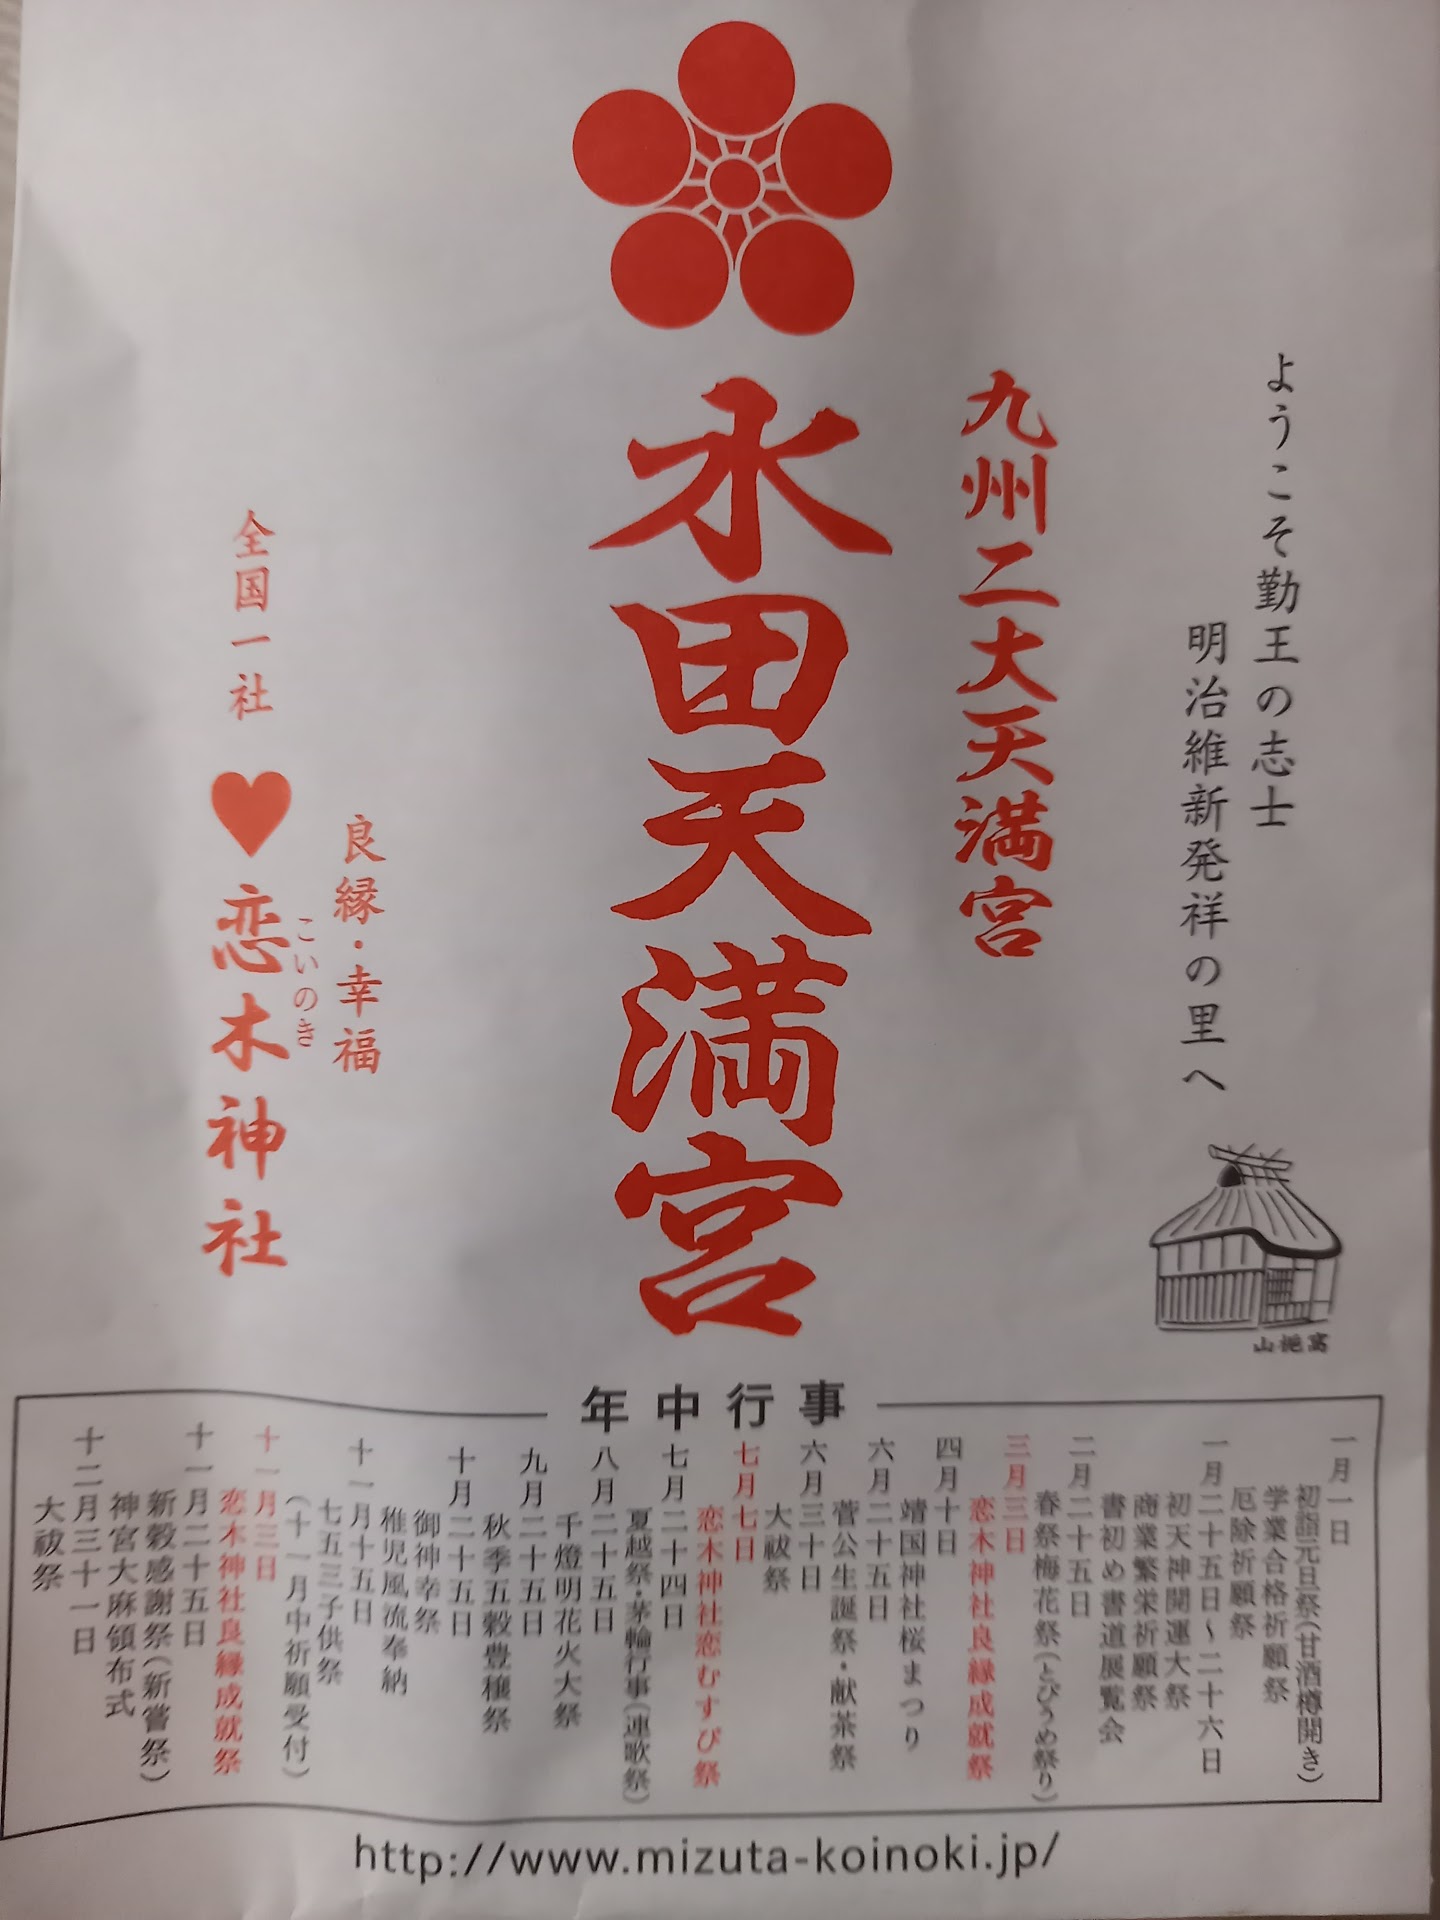 ようこそ勤王の志士
明治維新発祥の里へ
山梔窩
九州二大天満宮
水田天満宮
良縁・幸福
全国一社
♥恋木神社
こいのき
年中行事
一月一日
初詣元旦祭(甘酒樽開き)
学業合格祈願祭
厄除祈願祭
一月二十五日〜二十六日
初天神開運大祭
商業繁栄祈願祭
書初め書道展覧会
二月二十五日
春祭梅花祭(とびうめ祭り)
三月三日
恋木神社良縁成就祭
四月十日
靖国神社桜まつり
六月二十五日
菅公生誕祭・献茶祭
六月三十日
大祓祭
七月七日
恋木神社恋むすび祭
七月二十四日
夏越祭・茅輪行事(連歌祭)
八月二十五日
千燈明花火大祭
九月二十五日
秋季五穀豊穣祭
十月二十五日
御神幸祭
稚児風流奉納
十一月十五日
七五三子供祭
(十一月中祈願受付)
十一月三日
恋木神社良縁成就祭
十一月二十五日
新穀感謝祭(新嘗祭)
神宮大麻頒布式
十二月三十一日
大祓祭
http://www.mizuta-koinoki.jp/